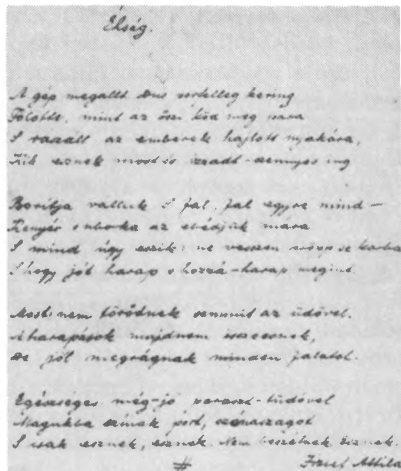 Éhség.
A gép megállt. Dus portelleg kering
Fölötte, mint az őszi köd meg pára
S rászáll az emberek hajlott nyakára,
Kik esznek most és izzadt-szennyes ing
Boritja válluk. S fal, fal egyre mind –
Kenyér s uborka az ebédjük mára
S mind úgy eszik: ne vesszen kárba
S hogy jót harap s hozzá-harap megint.
Most nem törődnek semmit az üdővel.
A harapások majdnem összeesnek,
De jól megrágnak minden falatot.
Egészséges még-jó paraszt-tüdővel
Magukba szívnak port, szénaszagot
S csak esznek, esznek. Nem beszélnek, esznek.
József Attila